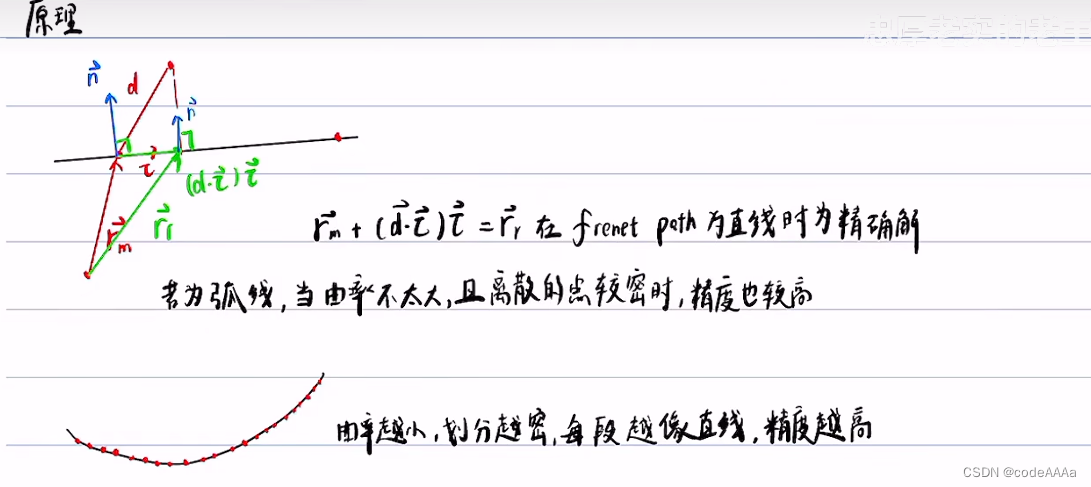 原理
忠厚老实的老王
n⃗
d
n⃗
τ⃗
(d·τ⃗)τ⃗
r⃗m
r⃗r
r⃗m + (d⃗·τ⃗)τ⃗ = r⃗r 在 frenet path 为直线时为精确解
若为弧线,当曲率不太大,且离散的点较密时,精度也较高
曲率越小,划分越密,每段越像直线,精度越高
CSDN @codeAAAa